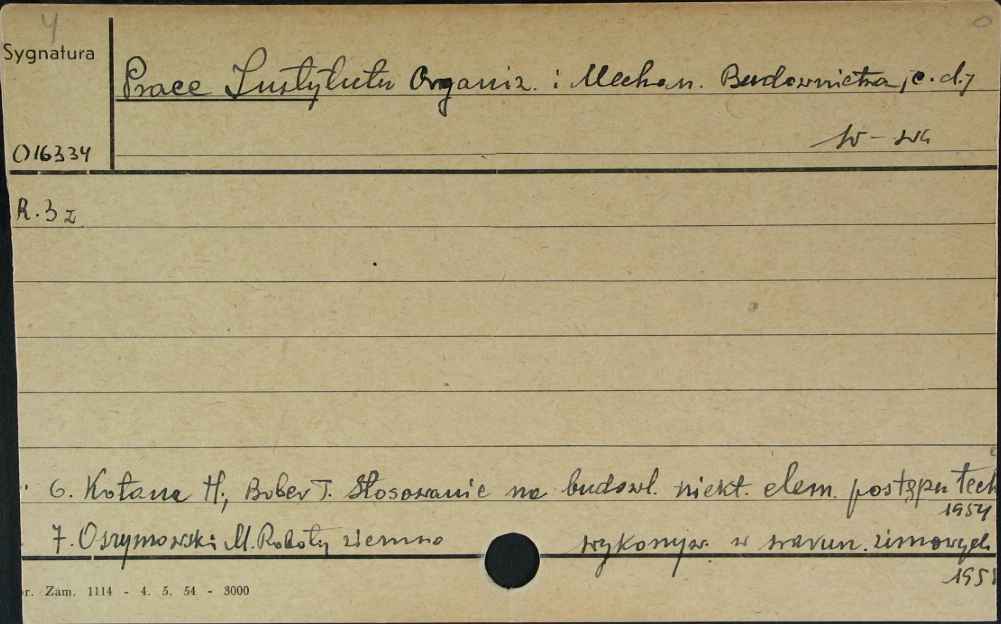 4
Sygnatura
Prace Instytutu Organiz. i Mechan. Budownictwa, c.d.
W-wa
016334
R. 3 z
6. Kotana H, Bober T. Stosowanie na budowl. niekt. elem. postępu tech
1954
7. Oszymowski M. Roboty ziemne wykonyw. w warun. zimowych
195
r. Zam. 1114 - 4. 5. 54 - 3000